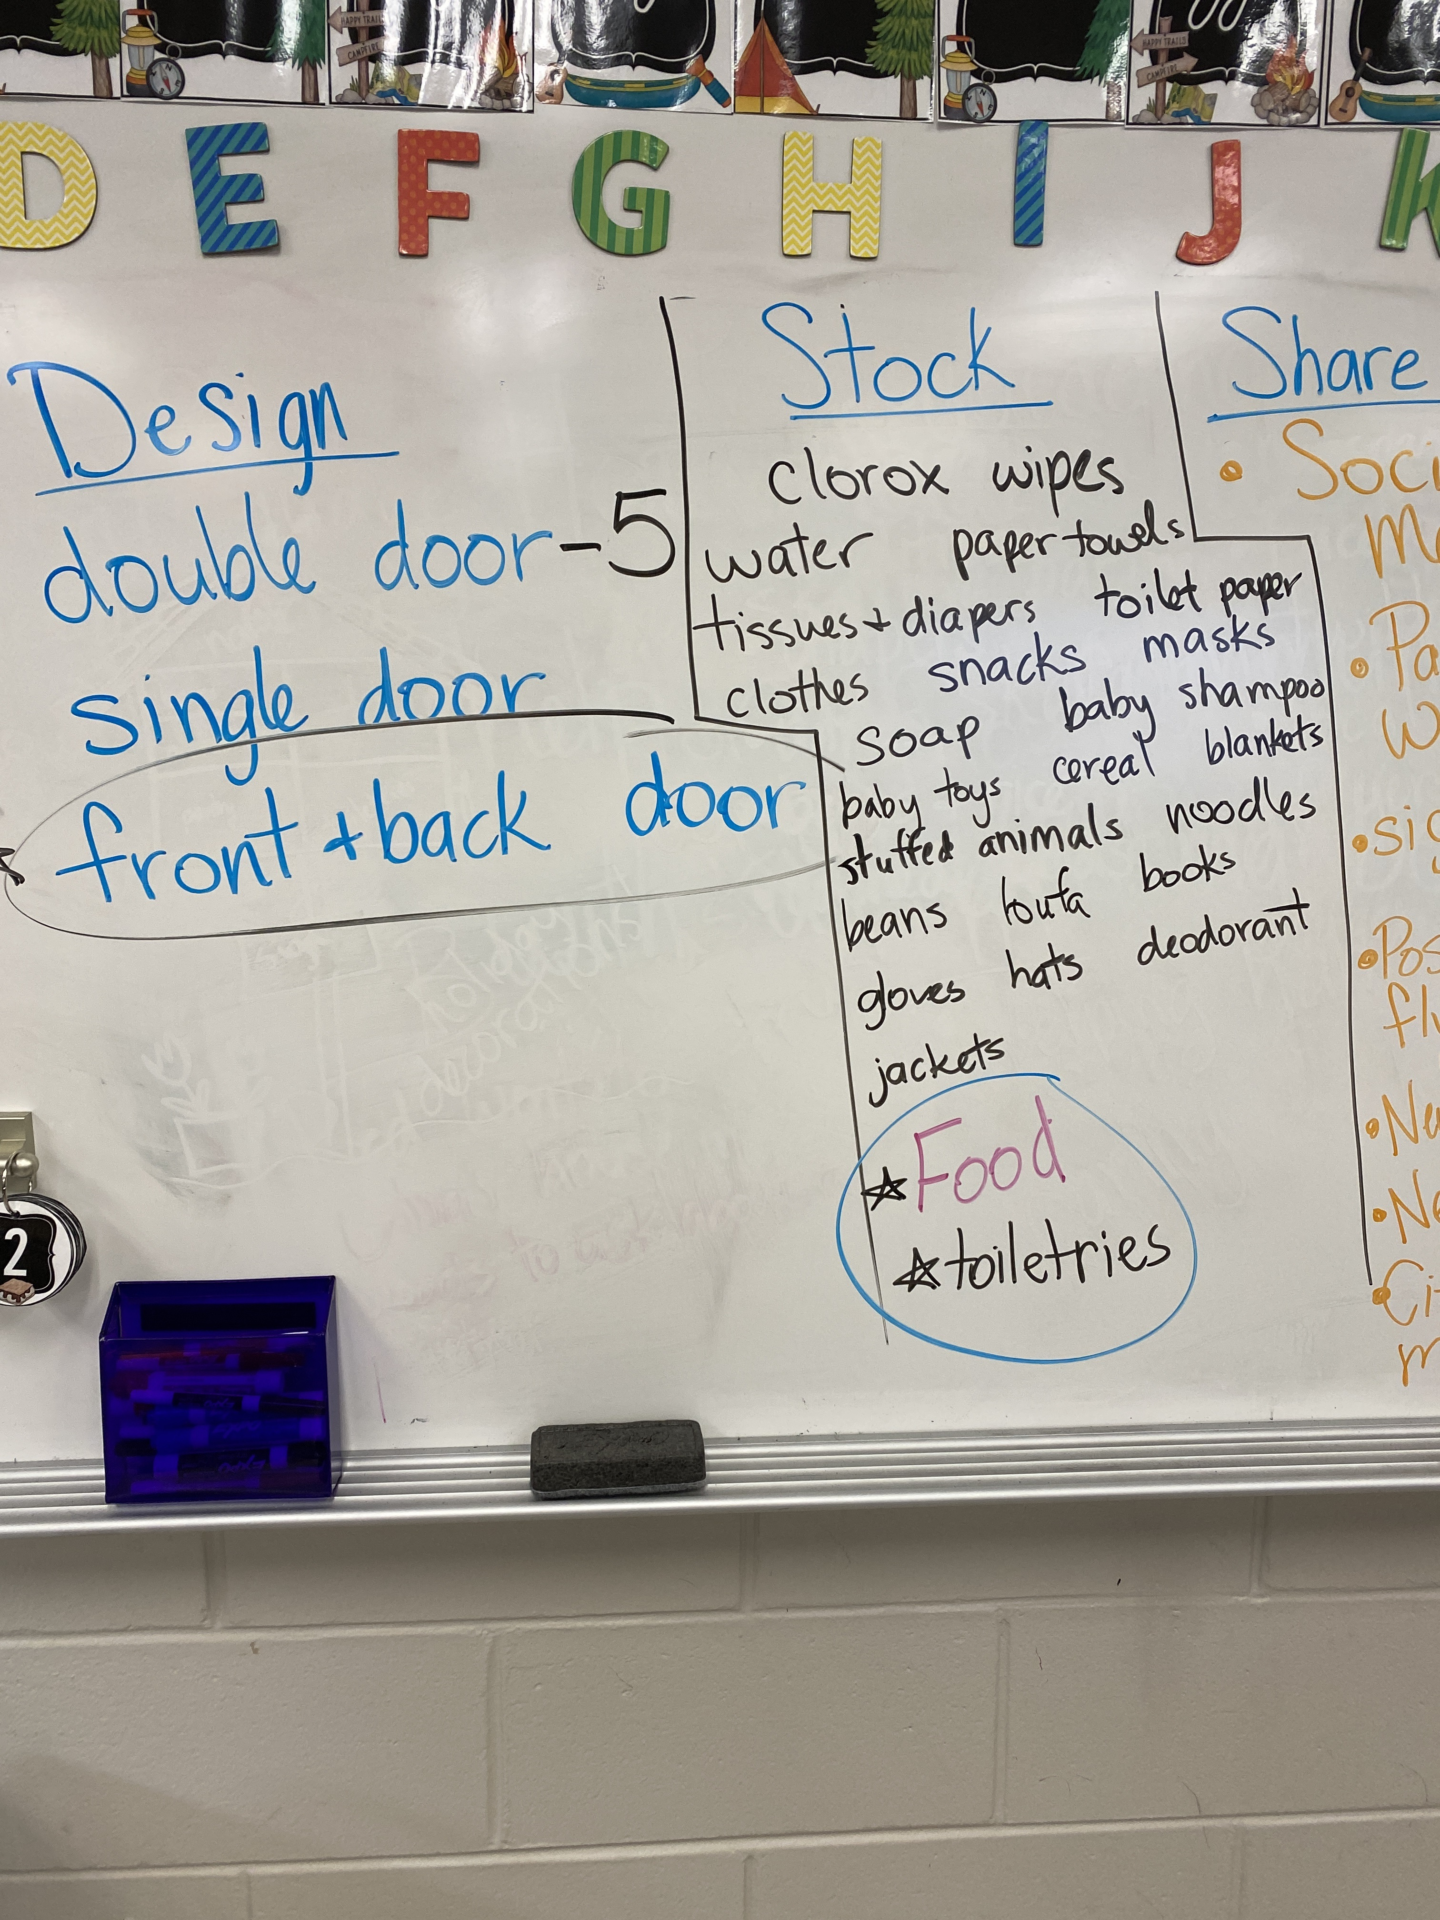 HAPPY TRAILS
CAMPFIRE
HAPPY TRAILS
CAMPFIRE
D E F G H I J K
Design
double door - 5
single door
front + back door
Stock
clorox wipes
water paper towels
tissues + diapers toilet paper
clothes snacks masks
soap baby shampoo
baby toys cereal blankets
stuffed animals noodles
beans loufa books
gloves hats deodorant
jackets
Food
toiletries
Share
2